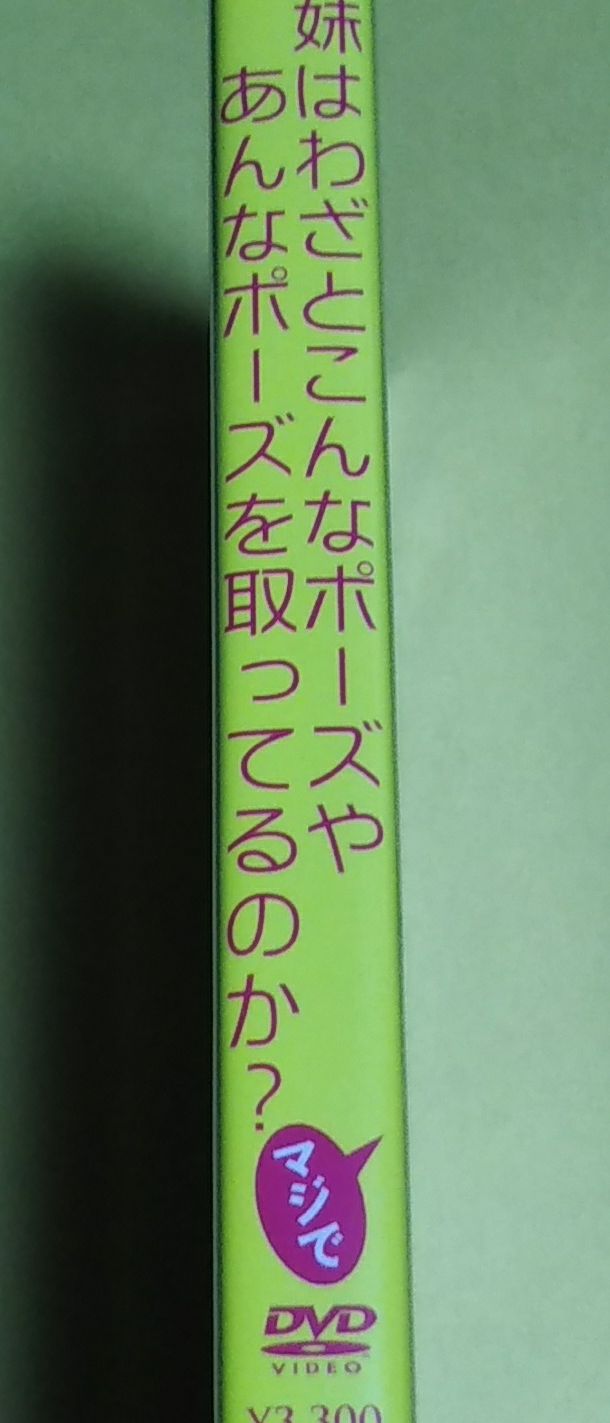 妹はわざとこんなポーズや
あんなポーズを取ってるのか?
マジで
DVD
VIDEO
¥3,300